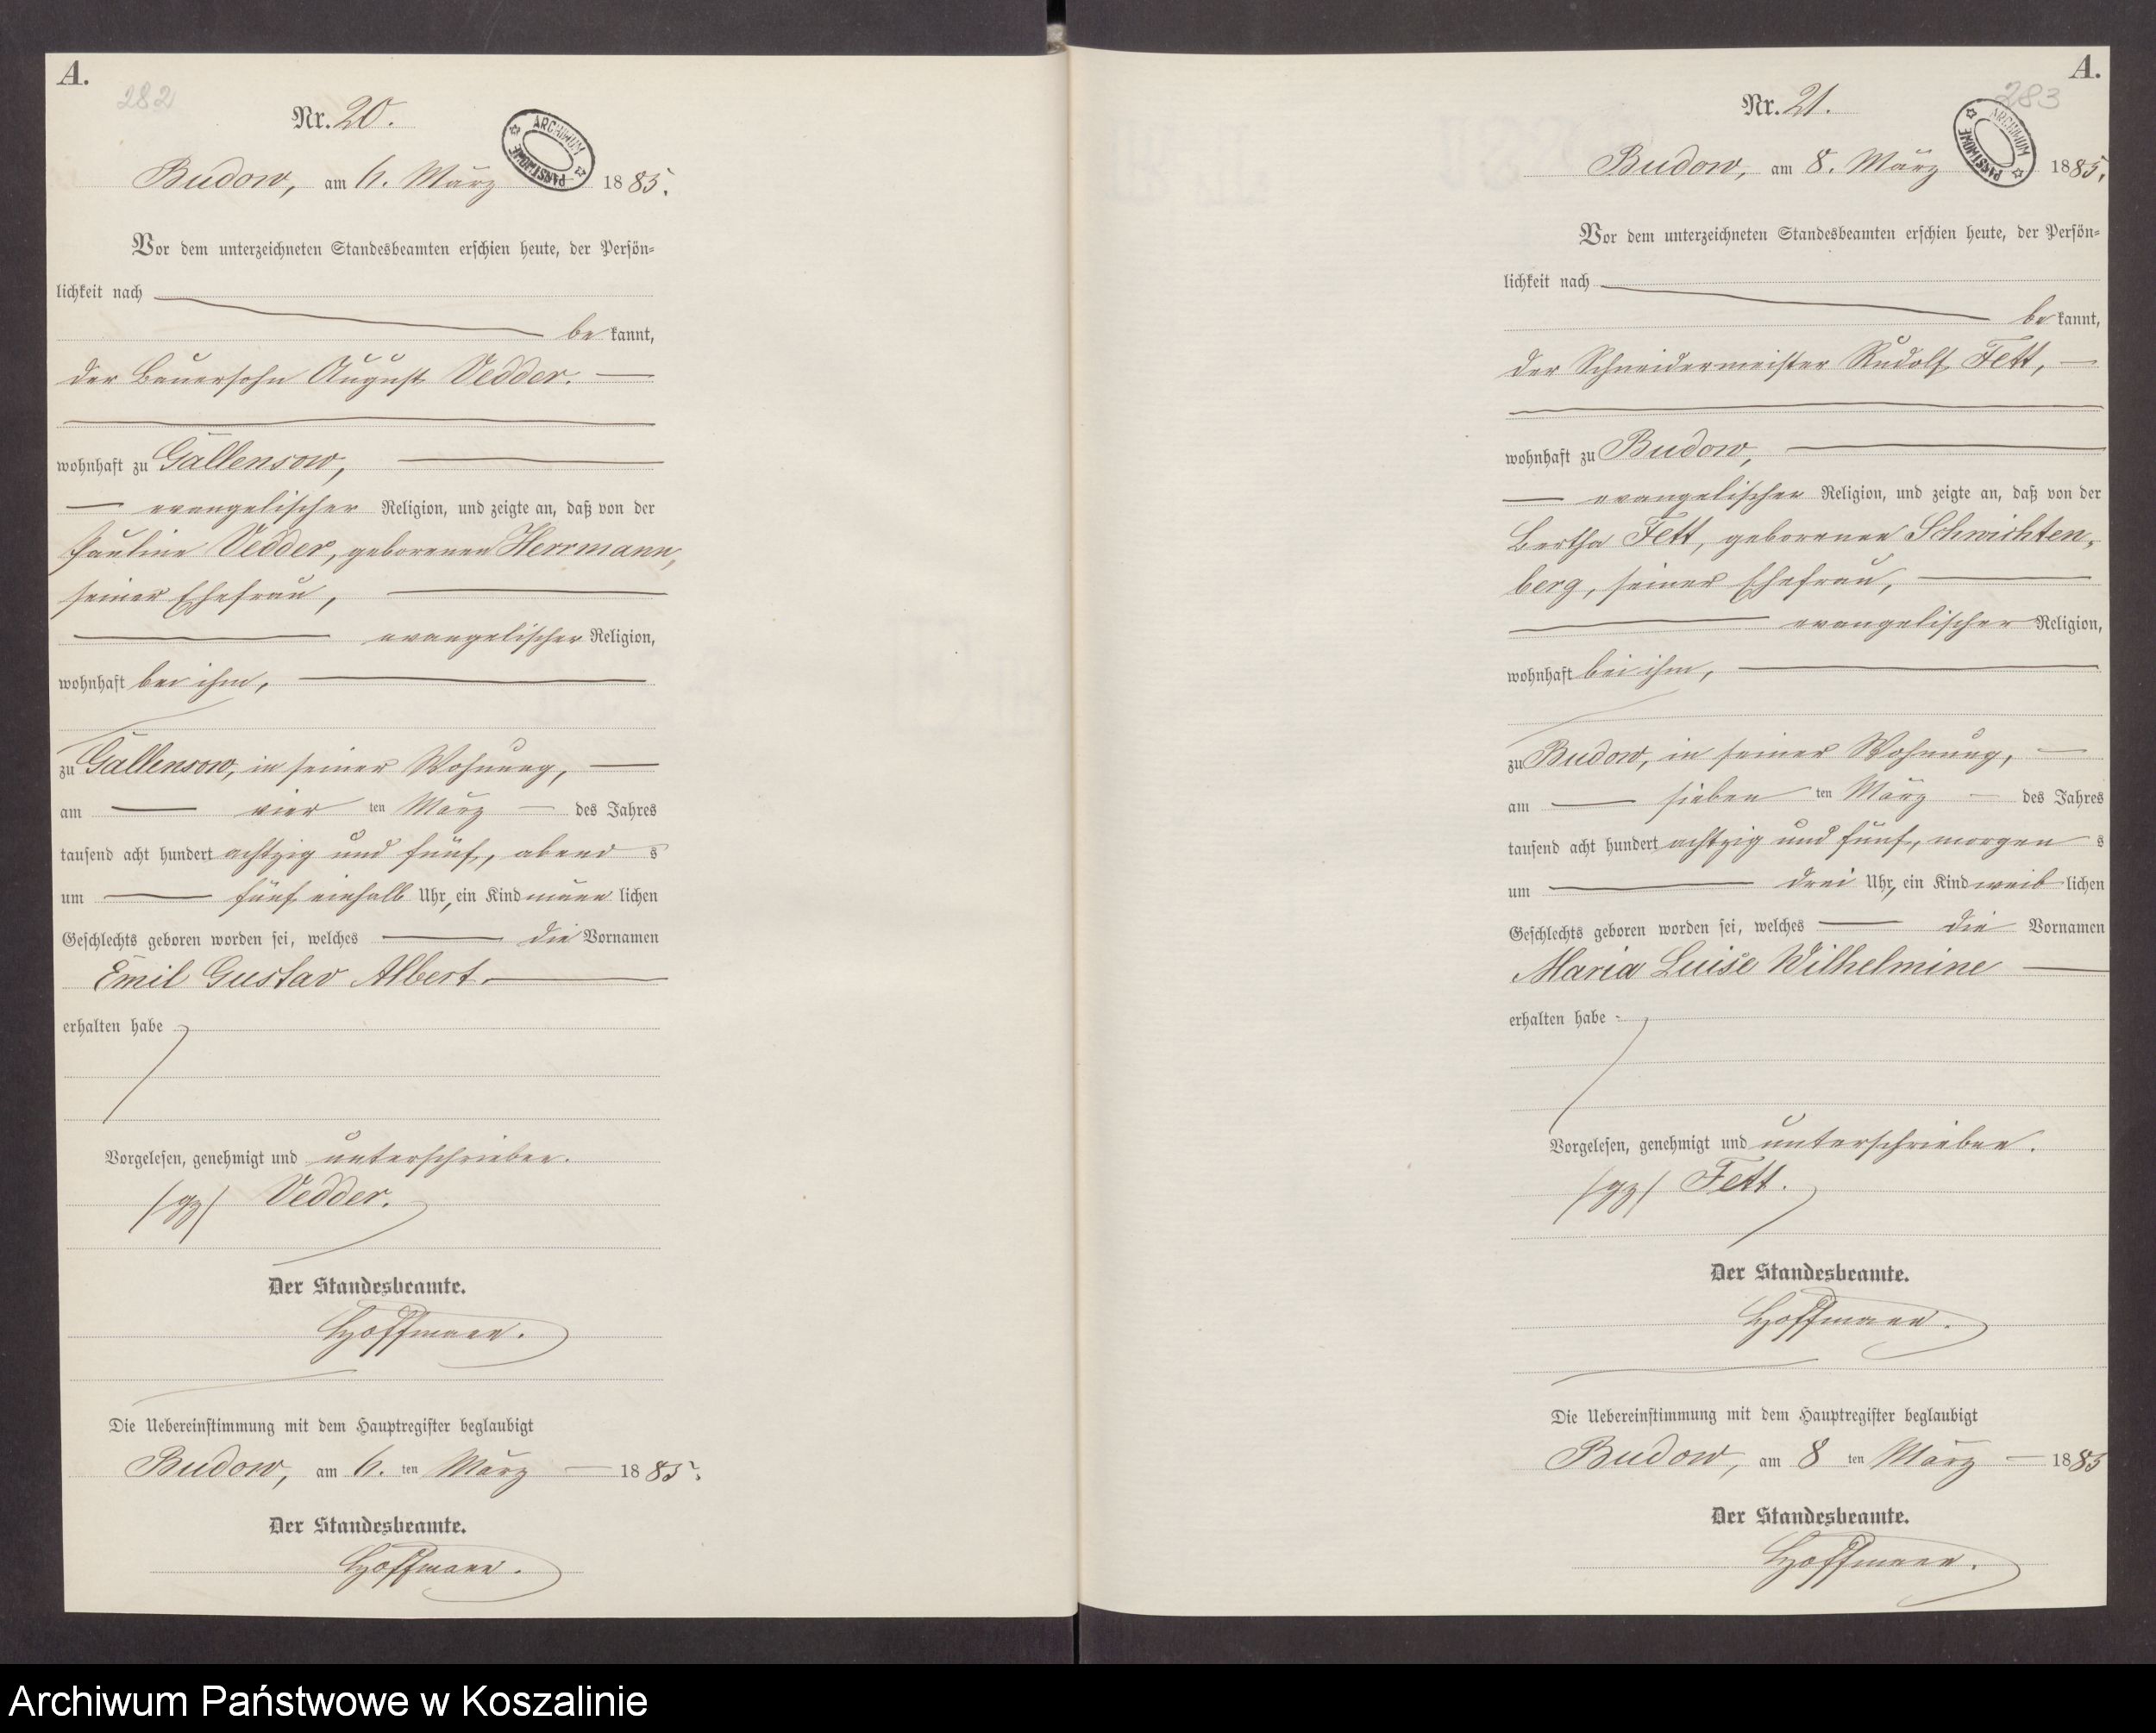 A.
282
Nr. 20.
ARCHIWUM PAŃSTWOWE
Budow, am 6. März 1885.
Vor dem unterzeichneten Standesbeamten erschien heute, der Persön=
lichkeit nach
be kannt,
der Bauersohn August Vedder.
wohnhaft zu Gallensow,
evangelischer Religion, und zeigte an, daß von der
Pauline Vedder, geborenen Herrmann,
seiner Ehefrau,
evangelischer Religion,
wohnhaft bei ihm,
zu Gallensow, in seiner Wohnung,
am vier ten März des Jahres
tausend acht hundert achtzig und fünf, abend s
um fünf einhalb Uhr, ein Kind männ lichen
Geschlechts geboren worden sei, welches die Vornamen
Emil Gustav Albert.
erhalten habe
Vorgelesen, genehmigt und unterschrieben.
/gz/ Vedder.
Der Standesbeamte.
Hoffmann.
Die Uebereinstimmung mit dem Hauptregister beglaubigt
Budow, am 6. ten März 1885.
Der Standesbeamte.
Hoffmann.
A.
283
Nr. 21.
ARCHIWUM PAŃSTWOWE
Budow, am 8. März 1885.
Vor dem unterzeichneten Standesbeamten erschien heute, der Persön=
lichkeit nach
be kannt,
der Schneidermeister Rudolf Fett,
wohnhaft zu Budow,
evangelischer Religion, und zeigte an, daß von der
Bertha Fett, geborenen Schwichten=
berg, seiner Ehefrau,
evangelischer Religion,
wohnhaft bei ihm,
zu Budow, in seiner Wohnung,
am sieben ten März des Jahres
tausend acht hundert achtzig und fünf, morgen s
um drei Uhr, ein Kind weib lichen
Geschlechts geboren worden sei, welches die Vornamen
Maria Luise Wilhelmine
erhalten habe
Vorgelesen, genehmigt und unterschrieben.
/gz/ Fett.
Der Standesbeamte.
Hoffmann.
Die Uebereinstimmung mit dem Hauptregister beglaubigt
Budow, am 8 ten März 1885
Der Standesbeamte.
Hoffmann.
Archiwum Państwowe w Koszalinie